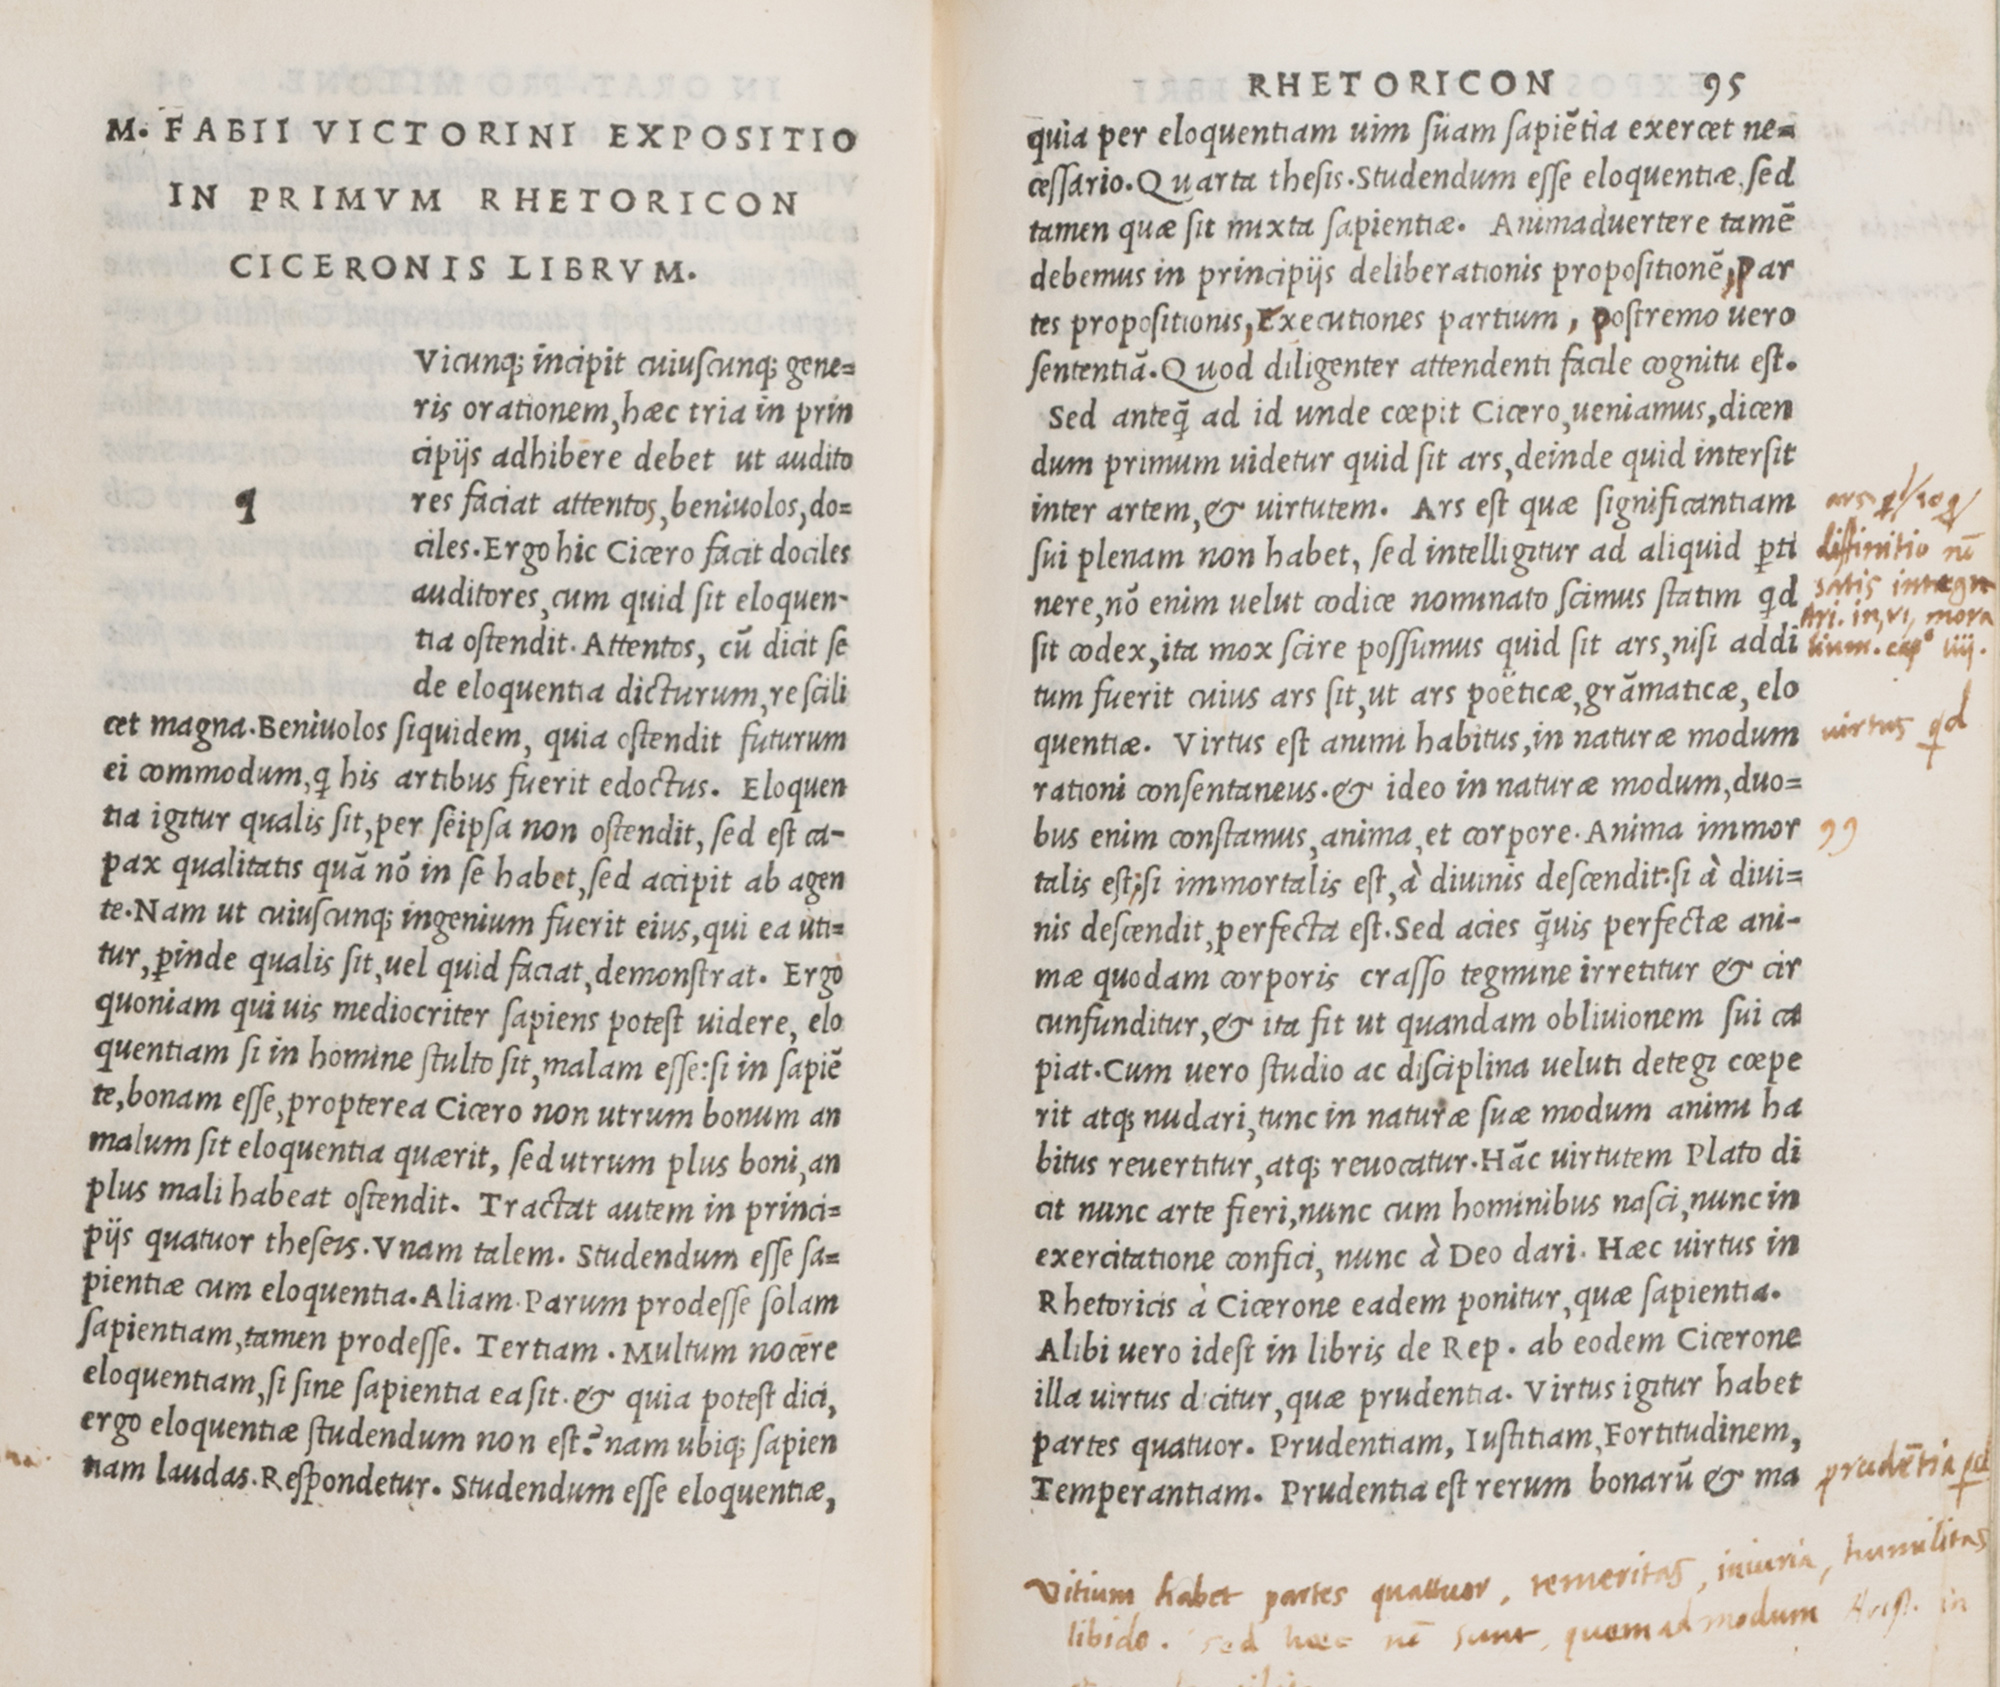 M. FABII VICTORINI EXPOSITIO
IN PRIMVM RHETORICON
CICERONIS LIBRVM.
q
Vicunq; incipit cuiuscunq; gene=
ris orationem, hæc tria in prin
cipijs adhibere debet ut audito
res faciat attentos, beniuolos, do=
ciles. Ergo hic Cicero facit dociles
auditores, cum quid sit eloquen-
tia ostendit. Attentos, cū dicit se
de eloquentia dicturum, re scili
cet magna. Beniuolos siquidem, quia ostendit futurum
ei commodum, q̃ his artibus fuerit edoctus. Eloquen
tia igitur qualis sit, per seipsa non ostendit, sed est ca-
pax qualitatis quā nō in se habet, sed accipit ab agen
te. Nam ut cuiuscunq; ingenium fuerit eius, qui ea uti=
tur, ꝑinde qualis sit, uel quid faciat, demonstrat. Ergo
quoniam qui uis mediocriter sapiens potest uidere, elo
quentiam si in homine stulto sit, malam esse: si in sapiē
te, bonam esse, propterea Cicero non utrum bonum an
malum sit eloquentia quærit, sed utrum plus boni, an
plus mali habeat ostendit. Tractat autem in princi=
pijs quatuor theseis. Vnam talem. Studendum esse sa=
pientiæ cum eloquentia. Aliam. Parum prodesse solam
sapientiam, tamen prodesse. Tertiam. Multum nocere
eloquentiam, si sine sapientia ea sit. & quia potest dici,
ergo eloquentiæ studendum non est? nam ubiq; sapien
tiam laudas. Respondetur. Studendum esse eloquentiæ,
RHETORICON 95
quia per eloquentiam uim suam sapiētia exercet ne=
cessario. Quarta thesis. Studendum esse eloquentiæ, sed
tamen quæ sit mixta sapientiæ. Animaduertere tamē
debemus in principijs deliberationis propositionē, Par
tes propositionis, Executiones partium, postremo uero
sententiā. Quod diligenter attendenti facile cognitu est.
Sed anteq̃ ad id unde cœpit Cicero, ueniamus, dicen
dum primum uidetur quid sit ars, deinde quid intersit
inter artem, & uirtutem. Ars est quæ significantiam
sui plenam non habet, sed intelligitur ad aliquid ꝑti
nere, nō enim uelut codice nominato scimus statim qd
sit codex, ita mox scire possumus quid sit ars, nisi addi
tum fuerit cuius ars sit, ut ars poëticæ, grāmaticæ, elo
quentiæ. Virtus est animi habitus, in naturæ modum
rationi consentaneus. & ideo in naturæ modum, duo=
bus enim constamus, anima, et corpore. Anima immor
talis est; si immortalis est, à diuinis descendit: si à diui=
nis descendit, perfecta est. Sed acies q̃uis perfectæ ani-
mæ quodam corporis crasso tegmine irretitur & cir
cunfunditur, & ita fit ut quandam obliuionem sui ca
piat. Cum uero studio ac disciplina ueluti detegi cœpe
rit atq; nudari, tunc in naturæ suæ modum animi ha
bitus reuertitur, atq; reuocatur. Hāc uirtutem Plato di
cit nunc arte fieri, nunc cum hominibus nasci, nunc in
exercitatione confici, nunc à Deo dari. Hæc uirtus in
Rhetoricis à Cicerone eadem ponitur, quæ sapientia.
Alibi uero idest in libris de Rep. ab eodem Cicerone
illa uirtus dicitur, quæ prudentia. Virtus igitur habet
partes quatuor. Prudentiam, Iustitiam, Fortitudinem,
Temperantiam. Prudentia est rerum bonarū & ma
diffinitio nō
satis integra
Ari. in, vi, mora
lium. cap° iiij.
uirtus qd
prudētia qd
Vitium habet partes quattuor, temeritas, iniuria, humilitas
libido. sed hæc nō sunt, quemadmodum Arist. in